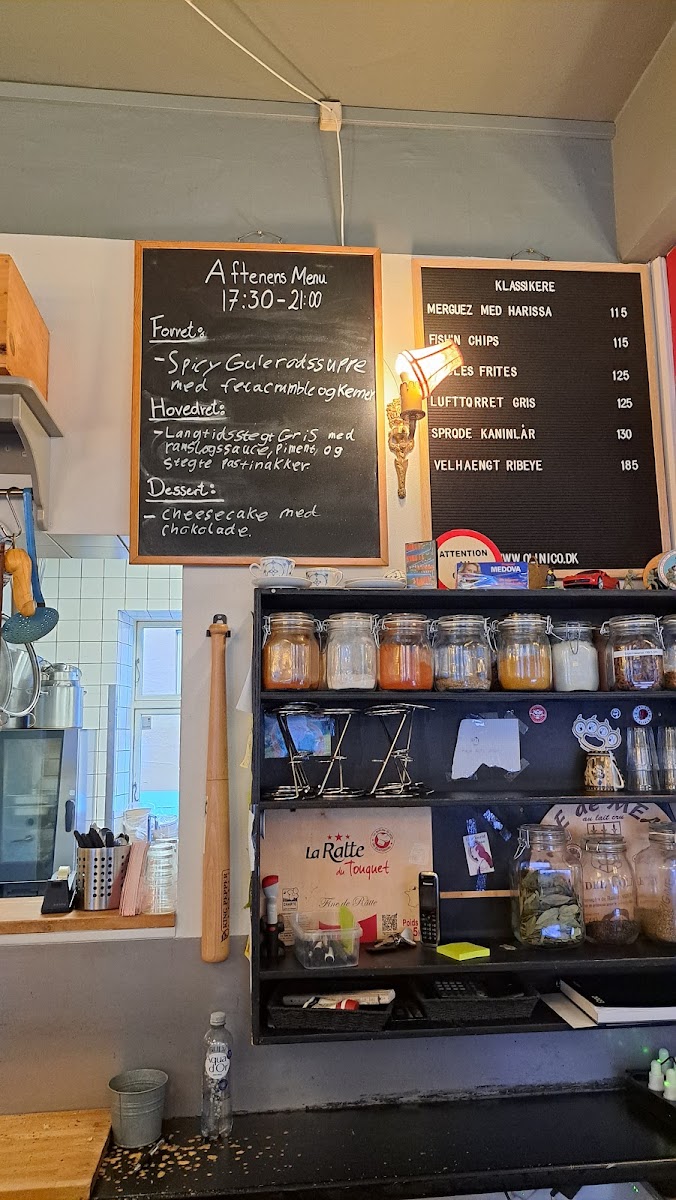 Aftenens Menu
17:30-21:00
Forret:
- Spicy Gulerodssuppe
med fetacrumble og kerner
Hovedret:
- Langtidsstegt Gris med
ramsløgssauce, Piment, og
stegte pastinakker.
Dessert:
- cheesecake med
chokolade.
KLASSIKERE
MERGUEZ MED HARISSA 115
FISH'N CHIPS 115
FRITES 125
LUFTTØRRET GRIS 125
SPRØDE KANINLÅR 130
VELHAENGT RIBEYE 185
ATTENTION
MEDOVA
La Ratte
du Touquet
Fine de Ratte
Poids
au lait cru
Aqua
d'Or